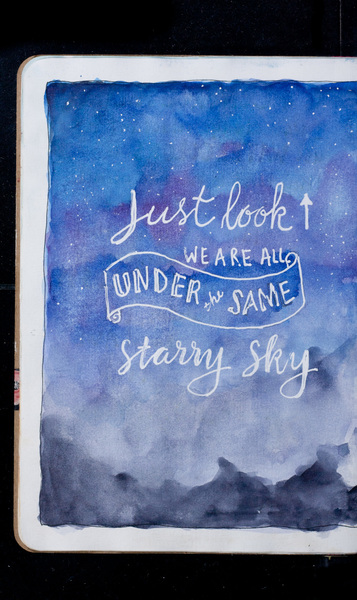 Just look ↑
WE ARE ALL
UNDER the SAME
starry sky